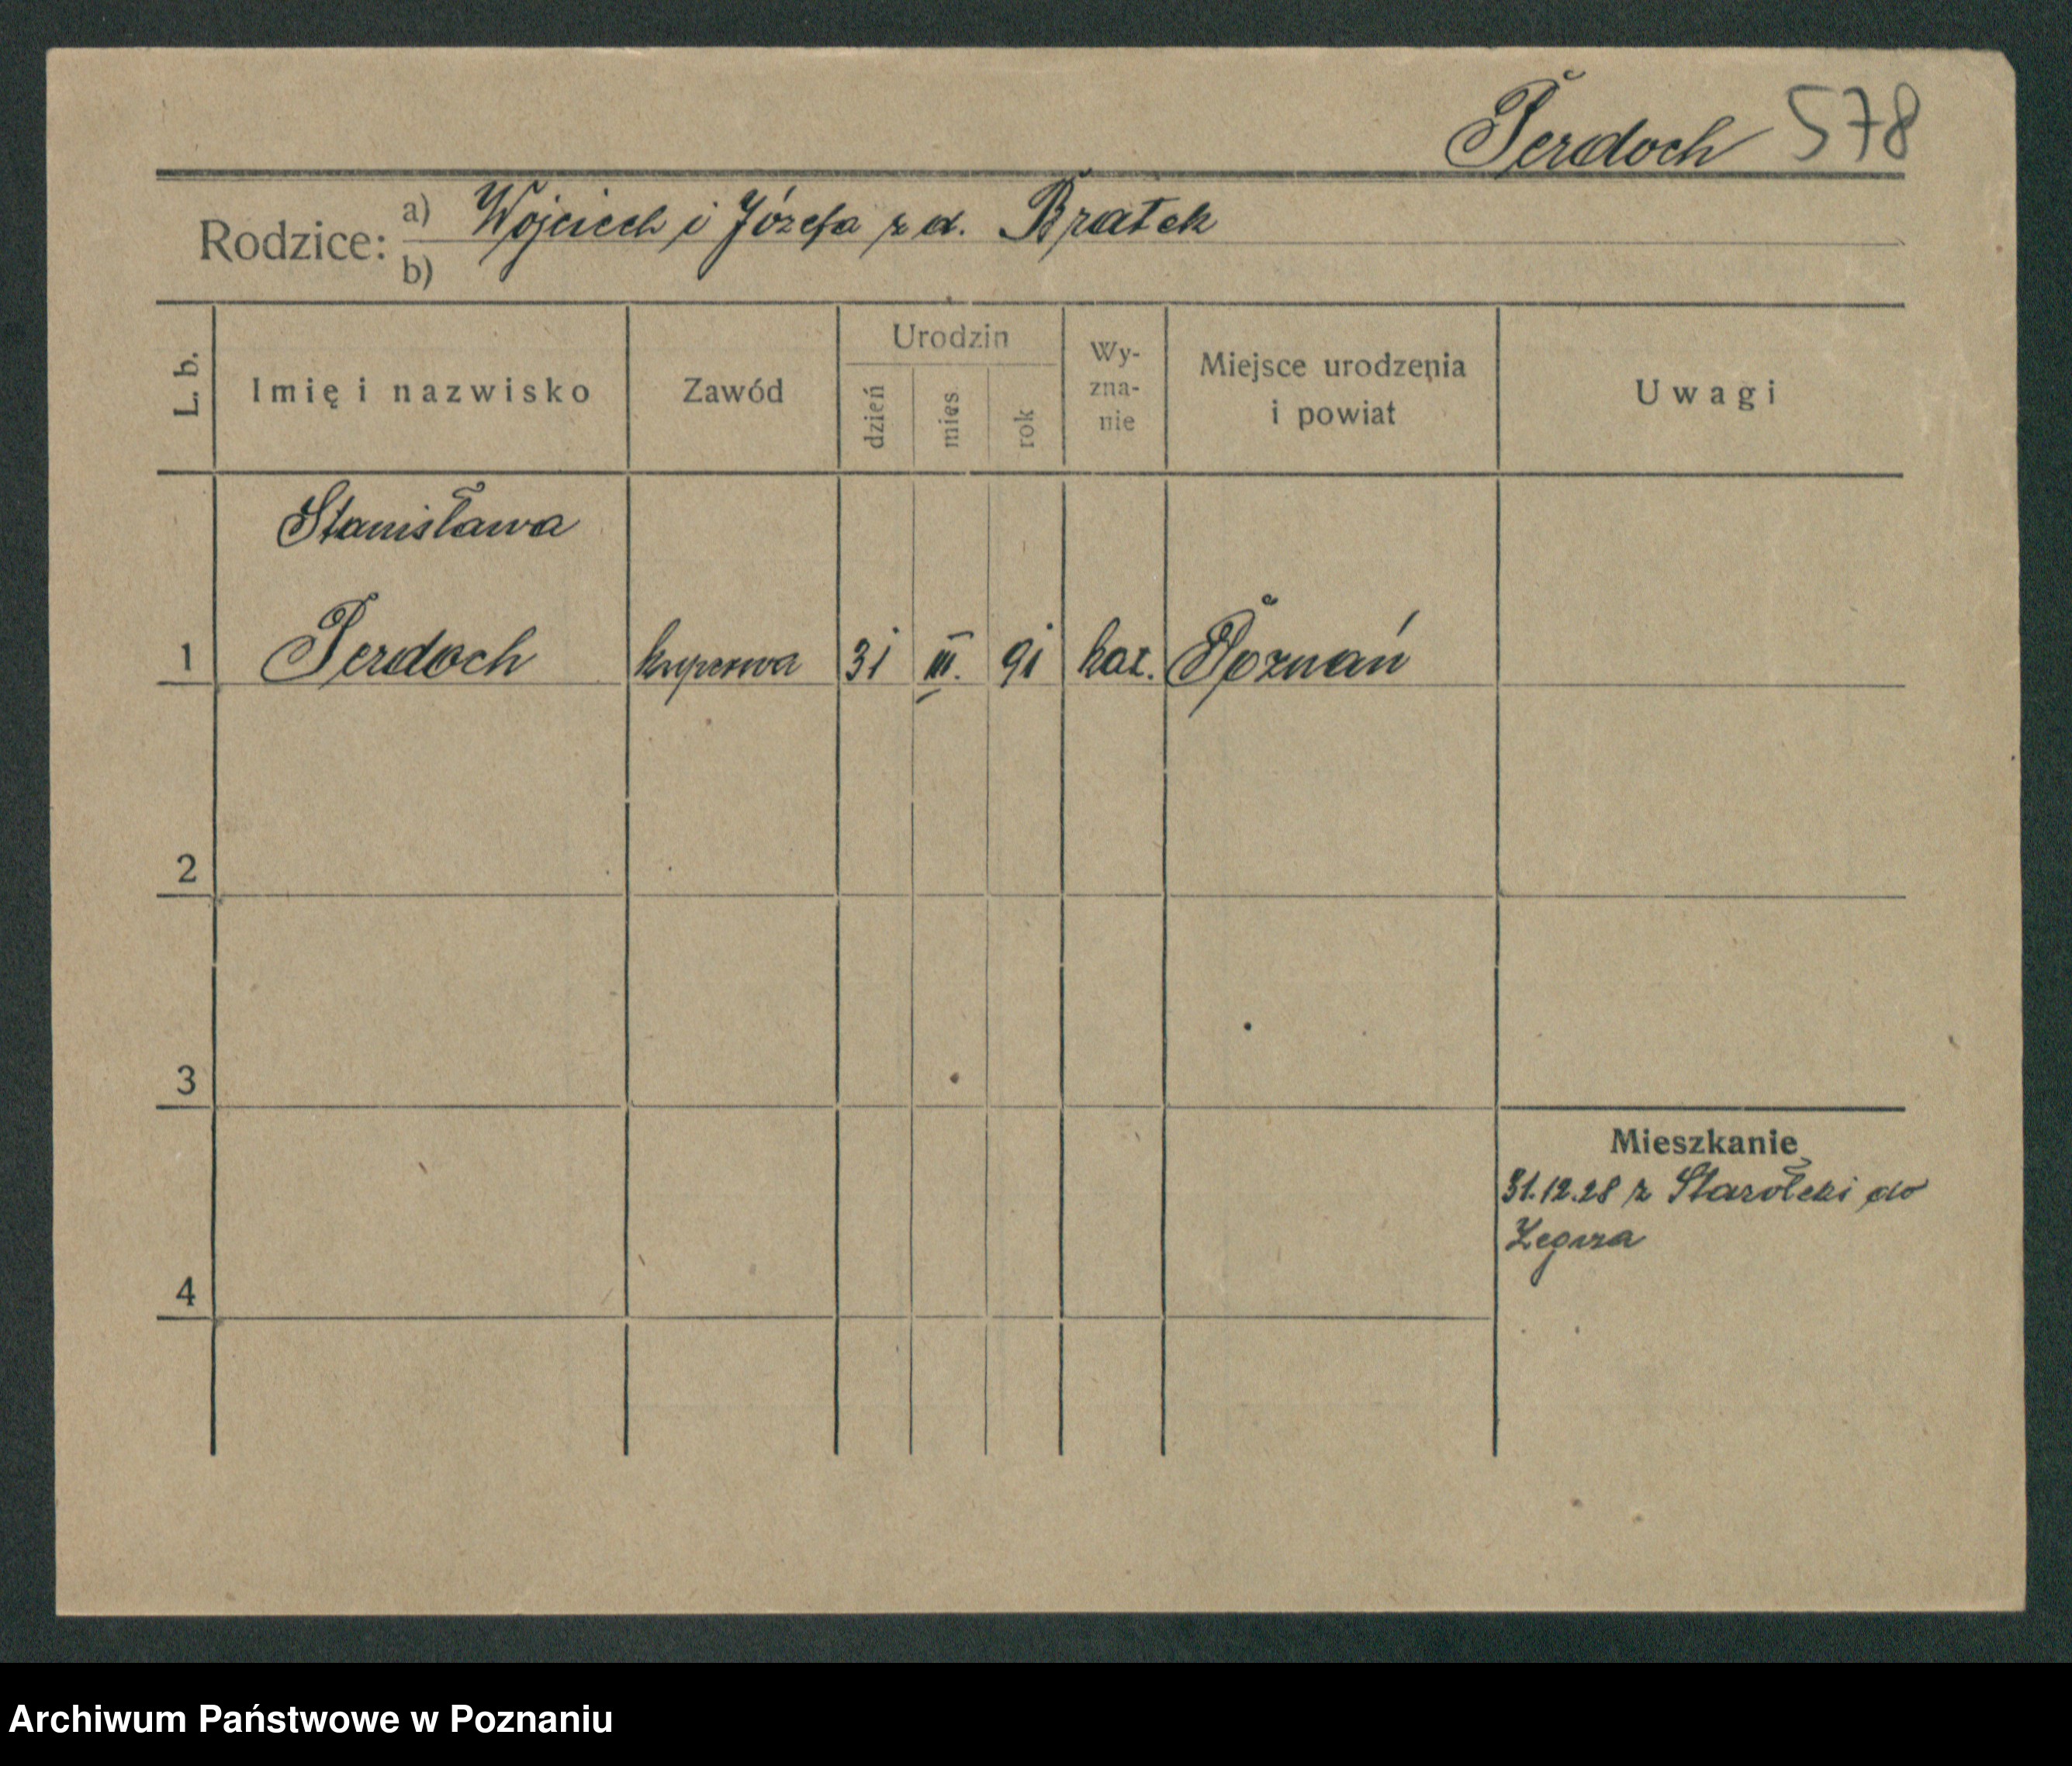 Perdoch 578
Rodzice: a) Wojciech i Józefa z d. Bratek
b)
L. b. Imię i nazwisko Zawód Urodzin dzień mies rok Wy-zna-nie Miejsce urodzenia i powiat Uwagi
Stanisława
1 Perdoch 31 III. 91 kat. Poznań
2
3
Mieszkanie
31.12.28 z Starołęki do
Żegrza
4
Archiwum Państwowe w Poznaniu